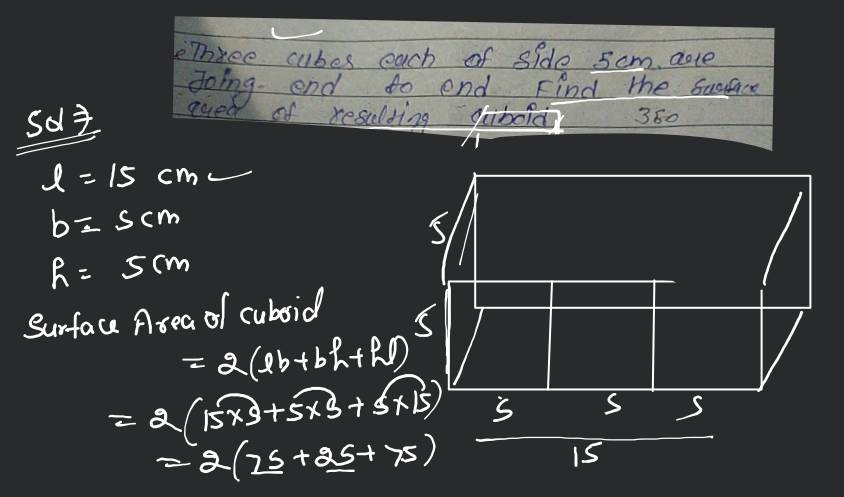 Three cubes each of side 5cm are
Joing end to end Find the Surface
area of resulting cuboid 350
Sol⇒
l = 15 cm
b = 5cm
h = 5cm
Surface Area of cuboid
= 2(lb+bh+hl)
= 2(15×5+5×5+5×15)
= 2(75+25+75)
5
5
5 5 5
15